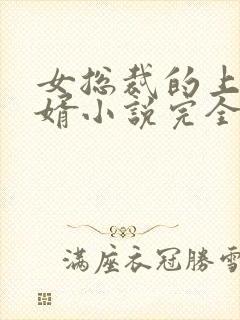 女总裁的上
婿小说完全
满座衣冠勝雪